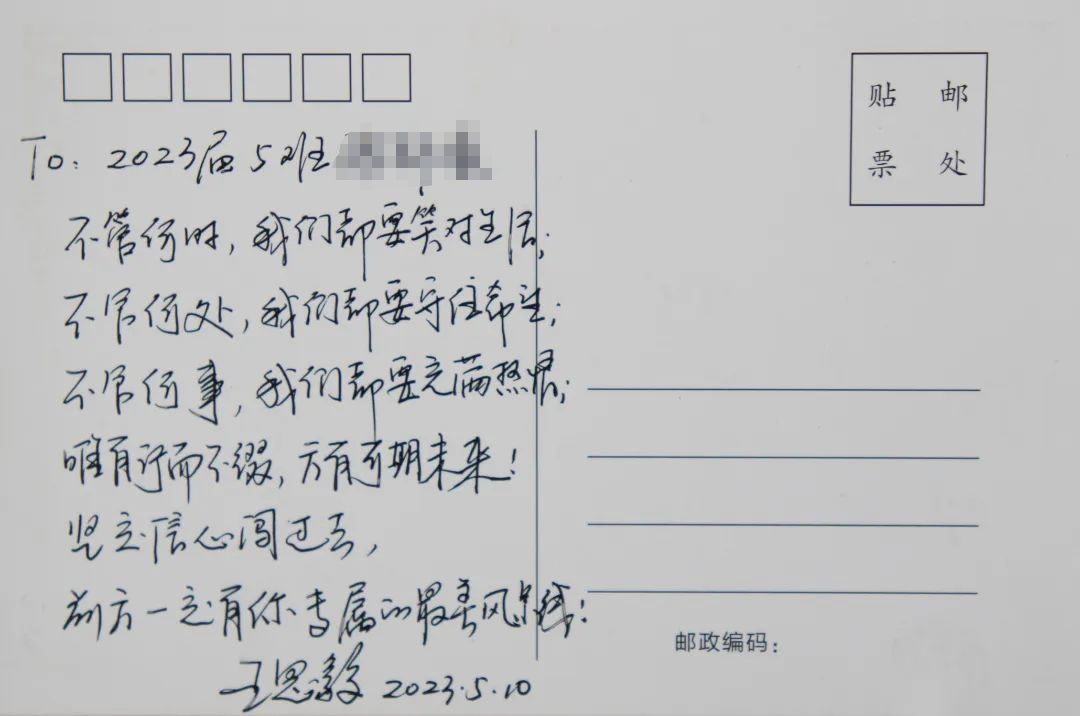 To: 2023届5班
不管何时,我们都要笑对生活;
不管何处,我们都要守住希望;
不管何事,我们都要充满热情;
唯有行而不缀,方有可期未来!
坚定信心闯过去,
前方一定有你专属的最美风景线!
王思毅 2023.5.10
贴邮
票处
邮政编码: